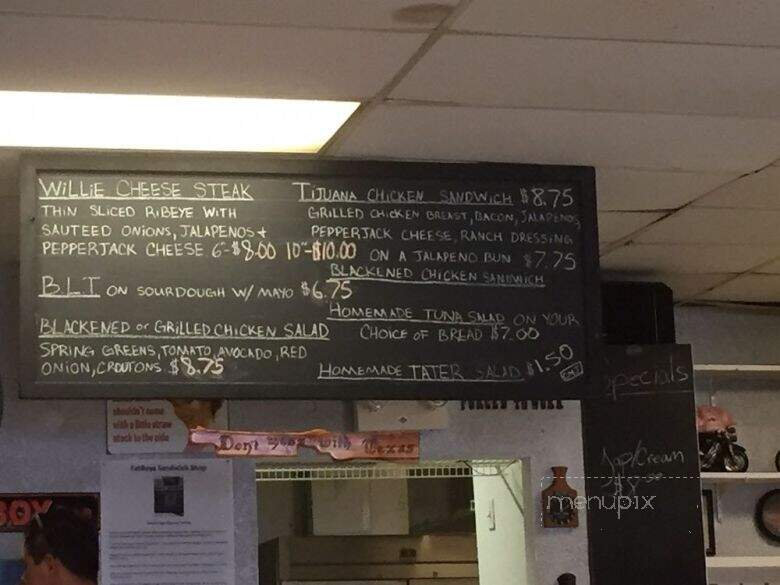 WILLIE CHEESE STEAK
THIN SLICED RIBEYE WITH
SAUTEED ONIONS, JALAPENOS +
PEPPERJACK CHEESE 6"-$8.00 10"-$10.00
B.L.T ON SOURDOUGH W/ MAYO $6.75
BLACKENED or GRILLED CHICKEN SALAD
SPRING GREENS, TOMATO, AVOCADO, RED
ONION, CROUTONS $8.75
TIJUANA CHICKEN SANDWICH $8.75
GRILLED CHICKEN BREAST, BACON, JALAPENOS
PEPPERJACK CHEESE, RANCH DRESSING
ON A JALAPENO BUN $7.75
BLACKENED CHICKEN SANDWICH
HOMEMADE TUNA SALAD ON YOUR
CHOICE OF BREAD $7.00
HOMEMADE TATER SALAD $1.50
specials
Cream
shouldn't come
with a little straw
stuck to the side
Dont mess with Texas
FatBoys Sandwich Shop
BOY
menupix